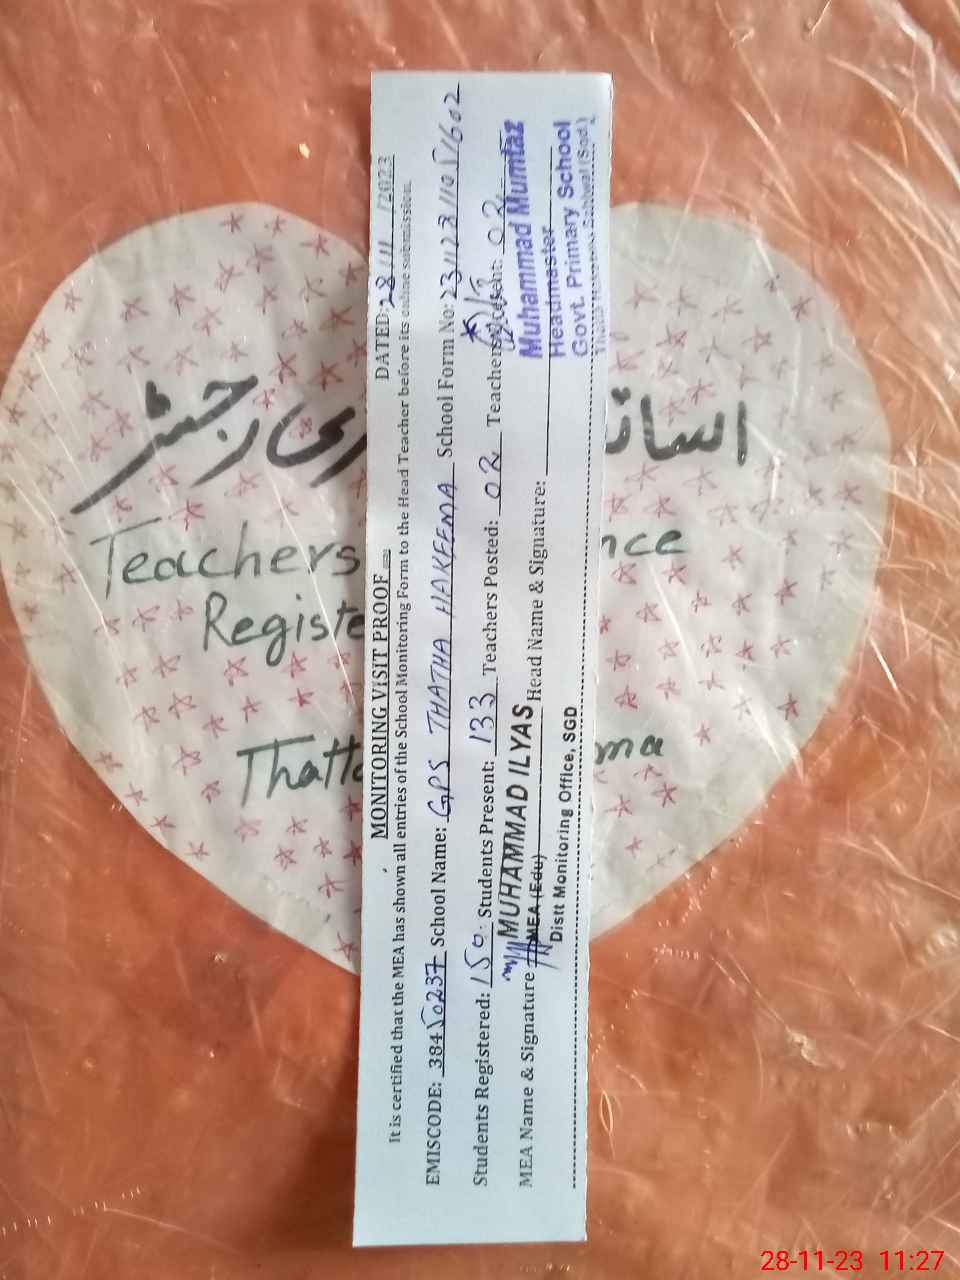 اسا ری رجسٹر
Teachers nce
Registe
Thatta ma
MONITORING VISIT PROOF DATED: 28/11/2023
It is certified that the MEA has shown all entries of the School Monitoring Form to the Head Teacher before its online submission.
EMISCODE: 38450237 School Name: GPS THATHA HAKEEMA School Form No: 231128110571602
Students Registered: 150 Students Present: 133 Teachers Posted: 02 Teachers Present: 02
MEA Name & Signature MUHAMMAD ILYAS Head Name & Signature:
MEA (Edu)
Distt Monitoring Office, SGD
Muhammad Mumtaz
Headmaster
Govt. Primary School
28-11-23 11:27